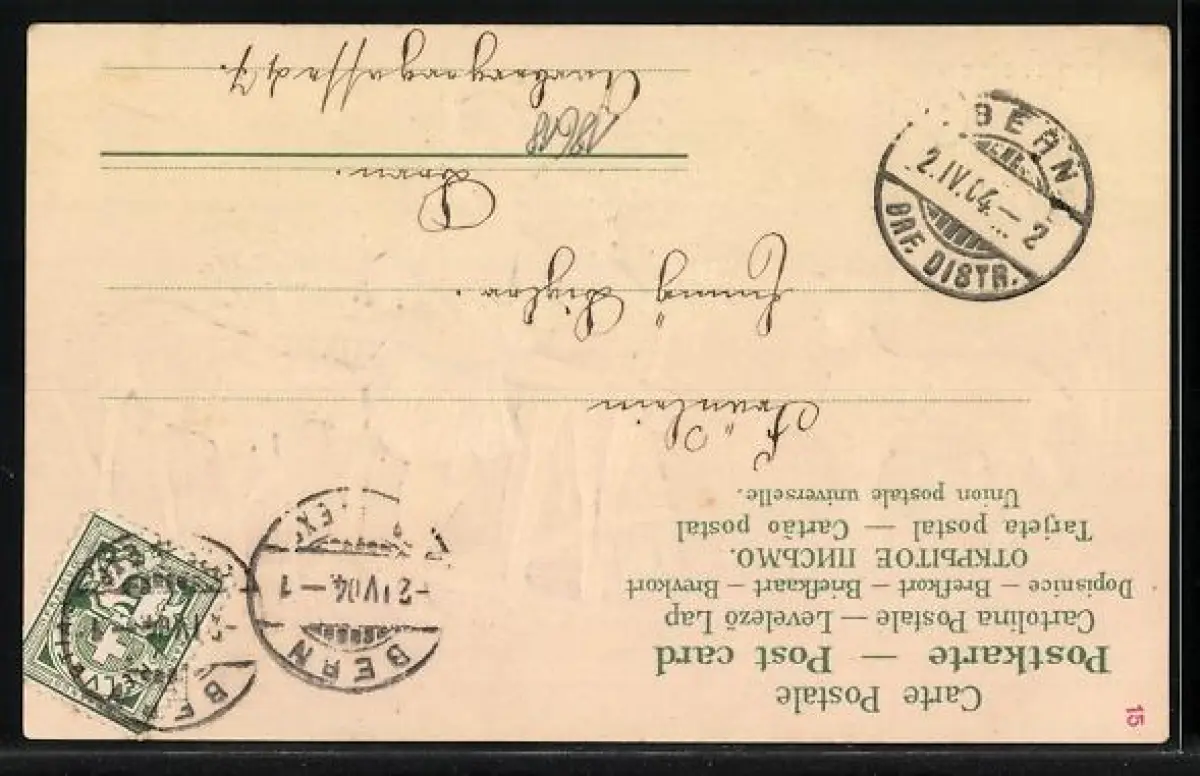 Carte Postale
Postkarte — Post card
Cartolina Postale — Levelező Lap
Dopisnice — Brefkort — Briefkaart — Brevkort
ОТКРЫТОЕ ПИСЬМО.
Tarjeta postal — Cartão postal
Union postale universelle.
Fräulein
Bern.
Aarbergergasse
15
BERN
-2.IV.04.-1
BERN
2.IV.04.-2
BRF. DISTR.